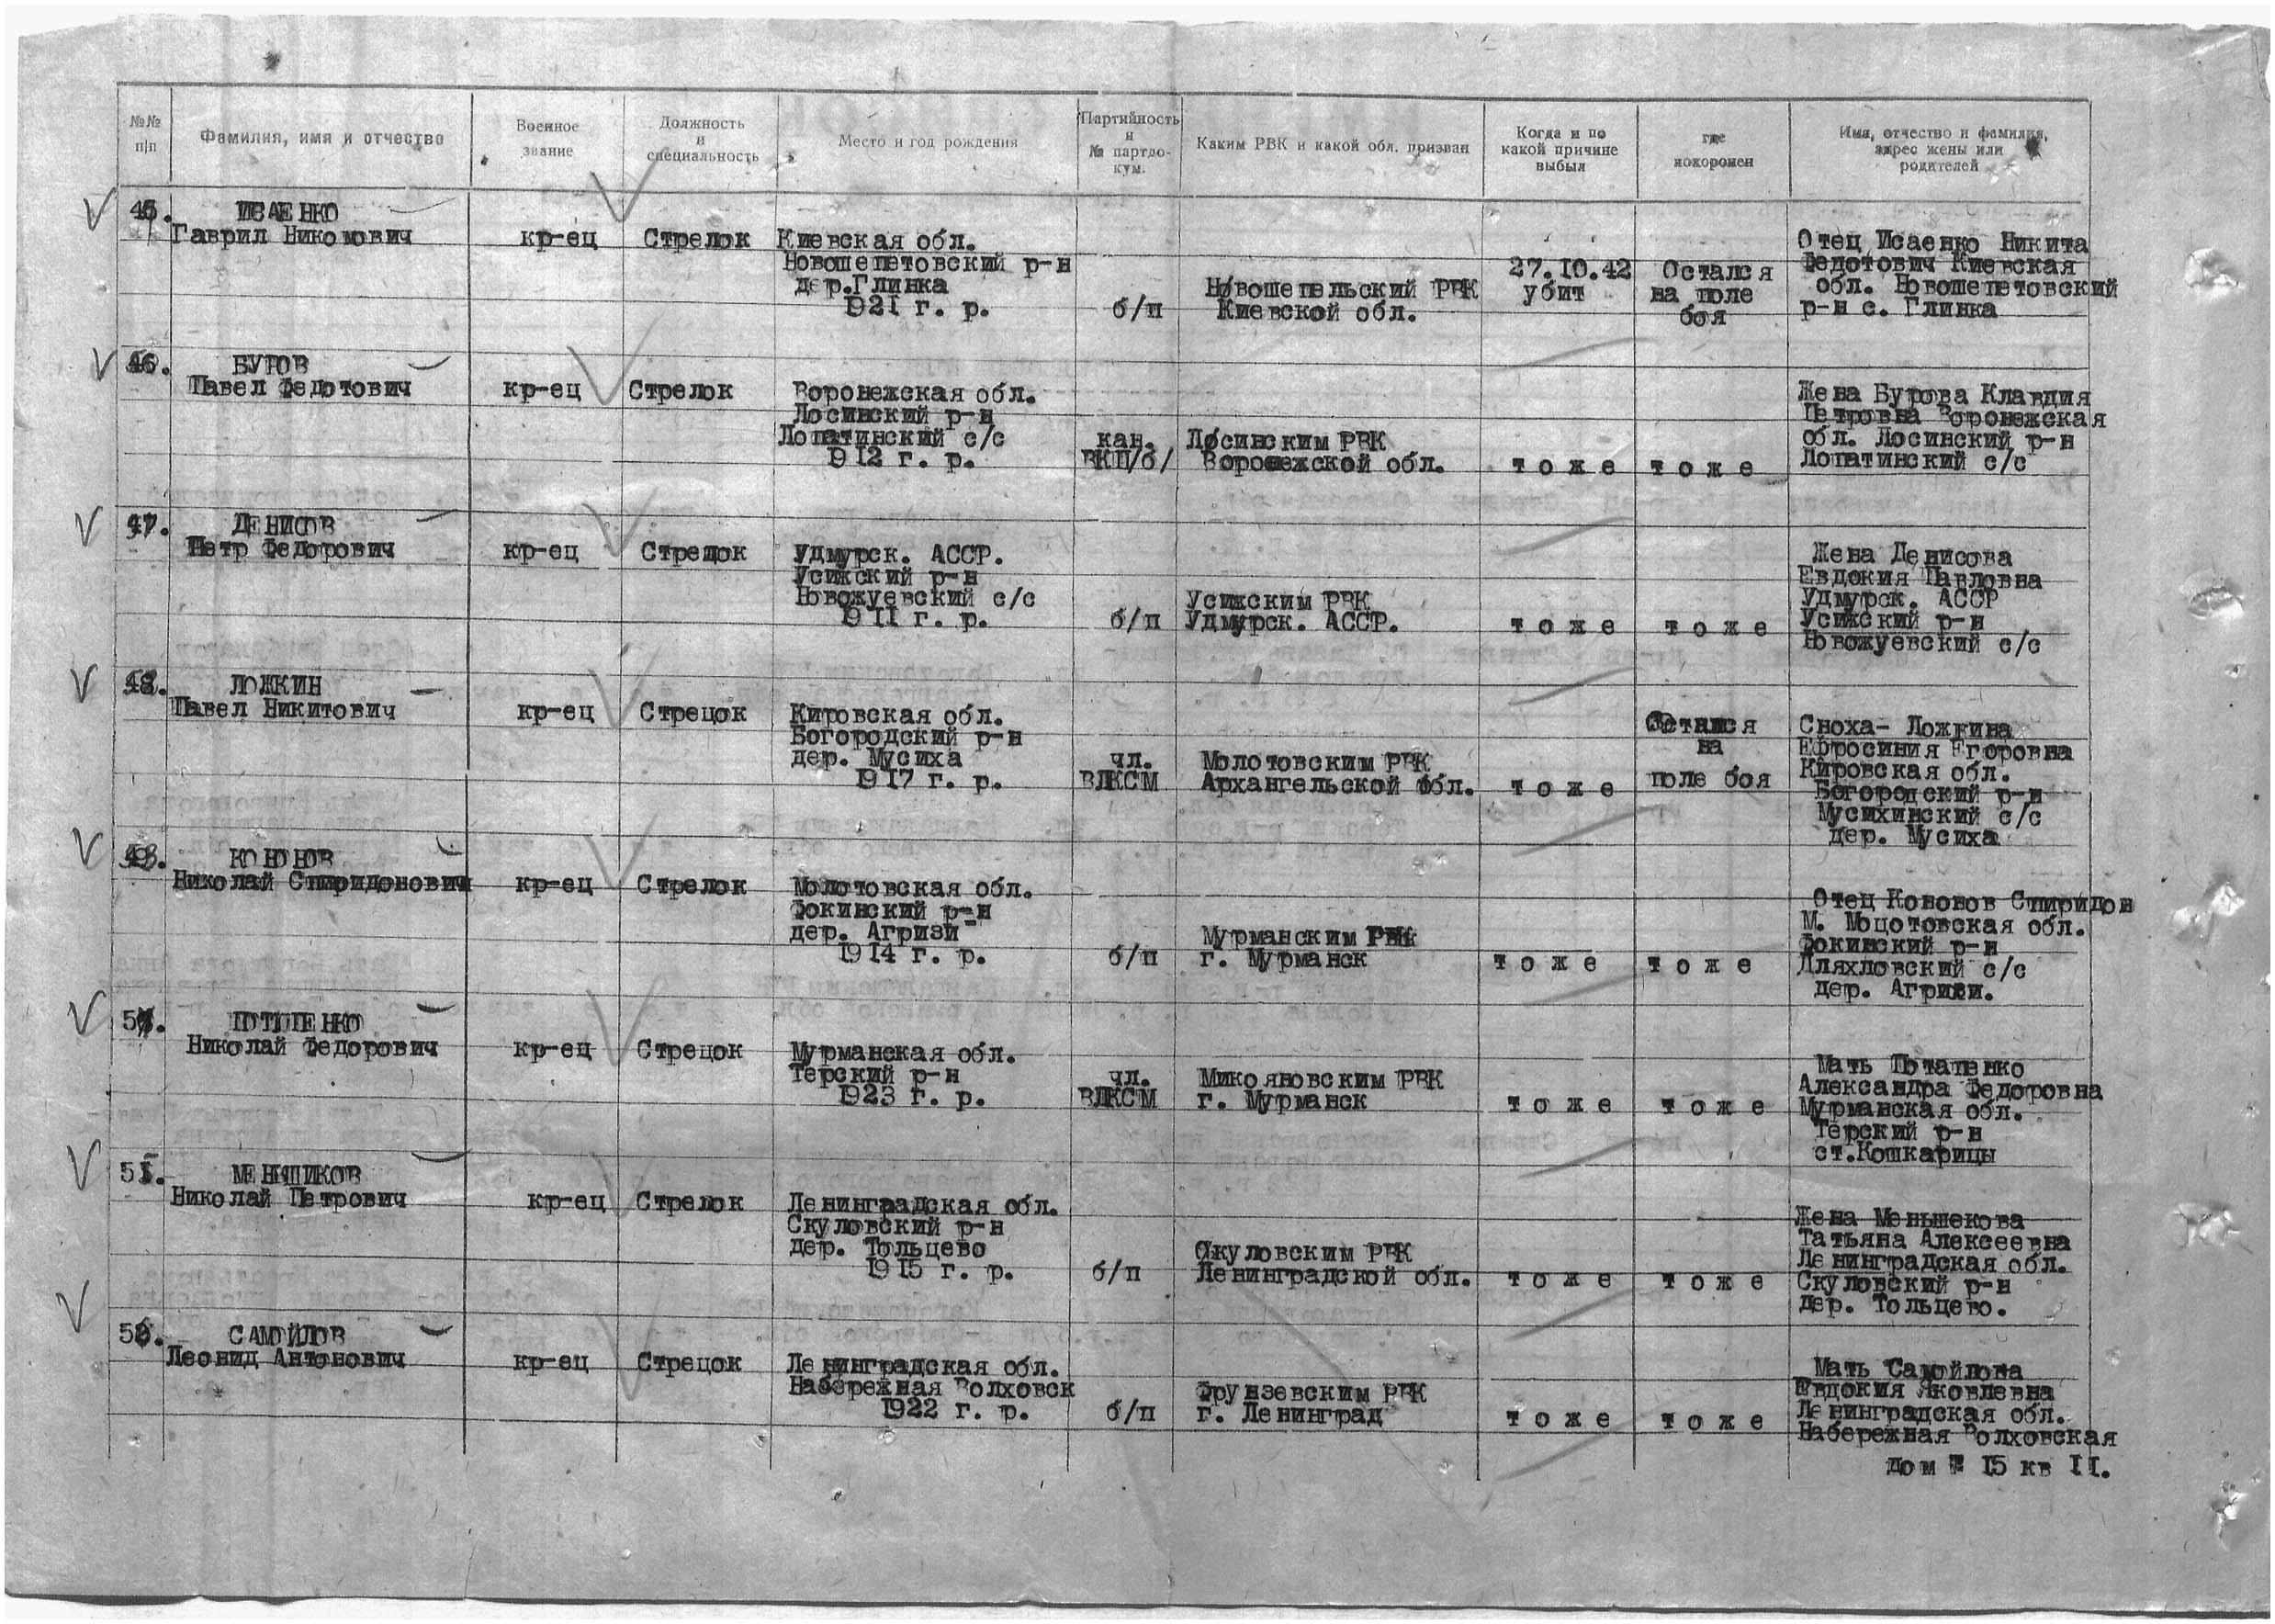 №№ п|п
Фамилия, имя и отчество
Военное звание
Должность и специальность
Место и год рождения
Партийность и № партдо-кум.
Каким РВК и какой обл. призван
Когда и по какой причине выбыл
где похоронен
Имя, отчество и фамилия, адрес жены или родителей
45.
ИСАЕНКО
Гаврил Никомович
кр-ец
Стрелок
Киевская обл.
Новошепетовский р-н
дер.Глинка
1921 г. р.
б/п
Новошепельский РВК
Киевской обл.
27.10.42
убит
Остался
на поле
боя
Отец Исаенко Никита
Федотович Киевская
обл. Новошепетовский
р-н с. Глинка
46.
БУРОВ
Павел Федотович
кр-ец
Стрелок
Воронежская обл.
Лосинский р-н
Лопатинский с/с
1912 г. р.
кан.
ВКП/б/
Лосинским РВК
Воронежской обл.
т о ж е
т о ж е
Жена Бурова Клавдия
Петровна Воронежская
обл. Лосинский р-н
Лопатинский с/с
47.
ДЕНИСОВ
Петр Федорович
кр-ец
Стрелок
Удмурск. АССР.
Усижский р-н
Новожуевский с/с
1911 г. р.
б/п
Усижским РВК
Удмурск. АССР.
т о ж е
т о ж е
Жена Денисова
Евдокия Павловна
Удмурск. АССР
Усижский р-н
Новожуевский с/с
48.
ЛОЖКИН
Павел Никитович
кр-ец
Стрецок
Кировская обл.
Богородский р-н
дер. Мусиха
1917 г. р.
чл.
ВЛКСМ
Молотовским РВК
Архангельской обл.
т о ж е
Остался
на
поле боя
Сноха- Ложкина
Ефросиния Егоровна
Кировская обл.
Богородский р-н
Мусихинский с/с
дер. Мусиха
49.
КОНОНОВ
Николай Спиридонович
кр-ец
Стрелок
Молотовская обл.
Фокинский р-н
дер. Агризи
1914 г. р.
б/п
Мурманским РВК
г. Мурманск
т о ж е
т о ж е
Отец Кононов Спиридон
М. Моцотовская обл.
Фокинский р-н
Дляхловский с/с
дер. Агризи.
ПОТОПЕНКО
Николай Федорович
кр-ец
Стрецок
Мурманская обл.
Терский р-н
1923 г. р.
чл.
ВЛКСМ
Микояновским РВК
г. Мурманск
т о ж е
т о ж е
Мать Потапенко
Александра Федоровна
Мурманская обл.
Терский р-н
ст.Кошкарицы
51.
МЕНЬШИКОВ
Николай Петрович
кр-ец
Стрелок
Ленинградская обл.
Скуловский р-н
дер. Тольцево
1915 г. р.
б/п
Окуловским РВК
Ленинградской обл.
т о ж е
т о ж е
Жена Меньшекова
Татьяна Алексеевна
Ленинградская обл.
Скуловский р-н
дер. Тольцево.
САМОЙЛОВ
Леонид Антонович
кр-ец
Стрецок
Ленинградская обл.
Набережная Волховск
1922 г. р.
б/п
Фрунзевским РВК
г. Ленинград
т о ж е
т о ж е
Мать Самойлова
Евдокия Яковлевна
Ленинградская обл.
Набережная Волховская
дом № 15 кв 11.